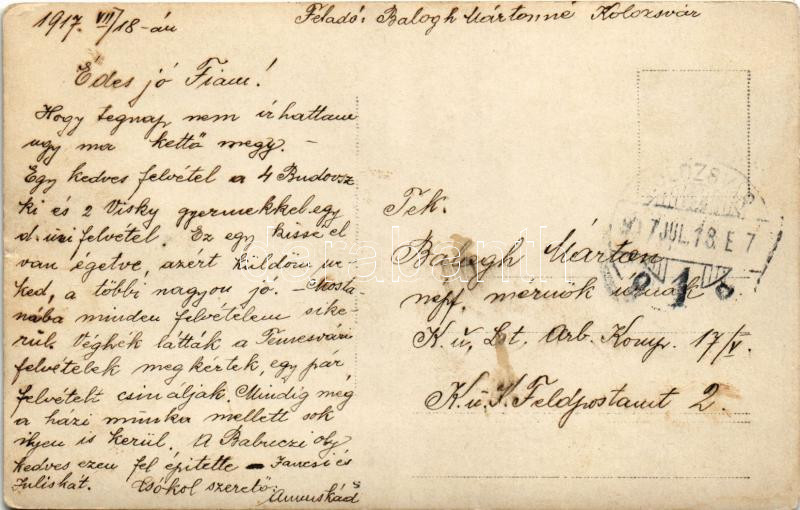 1917. VII/18-án
Feladó: Balogh Mártonné Kolozsvár
Édes jó Fiam!
Hogy tegnap nem irhattam
ugy ma kettő megy. -
Egy kedves felvétel a 4 Budovsz
ki és 2 Visky gyermekkel egy
d. uzi felvétel. Ez egy kissé el
van égetve, azért küldöm ne-
ked, a többi nagyon jó. - Mosta
nába minden felvételem sike-
rül. Véghék látták a Temesvári
felvételek megkértek, egy pár
felvételt csináljak. Mindig még
a házi munka mellett sok
ilyen is kerül. A Babuczi oly
kedvesen fel épitette - Jancsi és
Juliskát. Csókol szerető
Anuskád
Tek.
Balogh Márton
népf. mérnök urnak
K. u. Lst. Arb. Komp. 17/V.
K. u. K. Feldpostamt 2.
KOLOZSVÁR
917 JUL. 18. E 7
1
darabanth